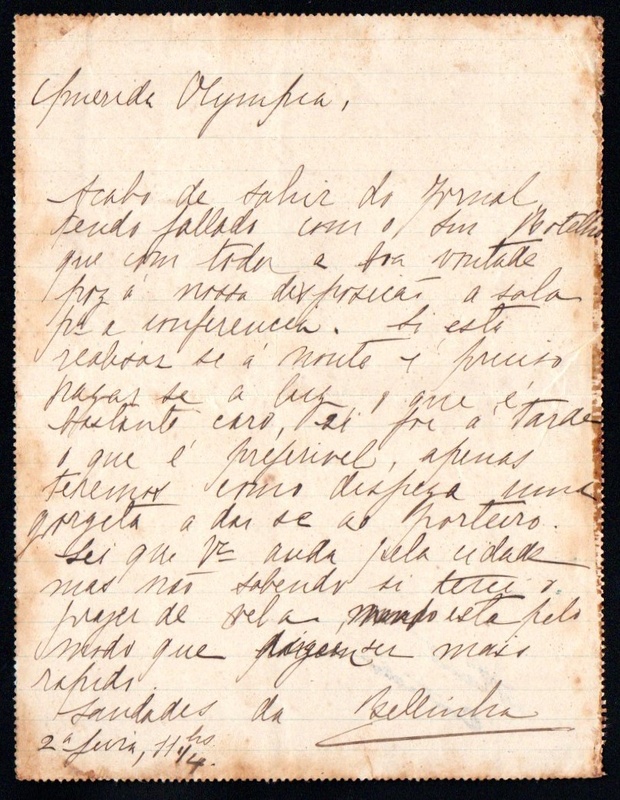 Querida Olympia,
Acabo de sahir do Jornal,
tendo fallado com o Snr Botelho
que com toda a boa vontade
poz á nossa disposição a sala
pª a conferencia. Si esta
realisar se á noute é preciso
pagar se a luz, o que é
bastante caro, si for á tarde
o que é preferivel, apenas
teremos como despeza uma
gorgeta a dar se ao porteiro.
Sei que Vᶜᵉ anda pela cidade
mas não sabendo si terei o
prazer de vel a, mando esta pelo
modo que ser mais
rapido.
Saudades da Bellinha
2ª feira, 11 1/4 hs.